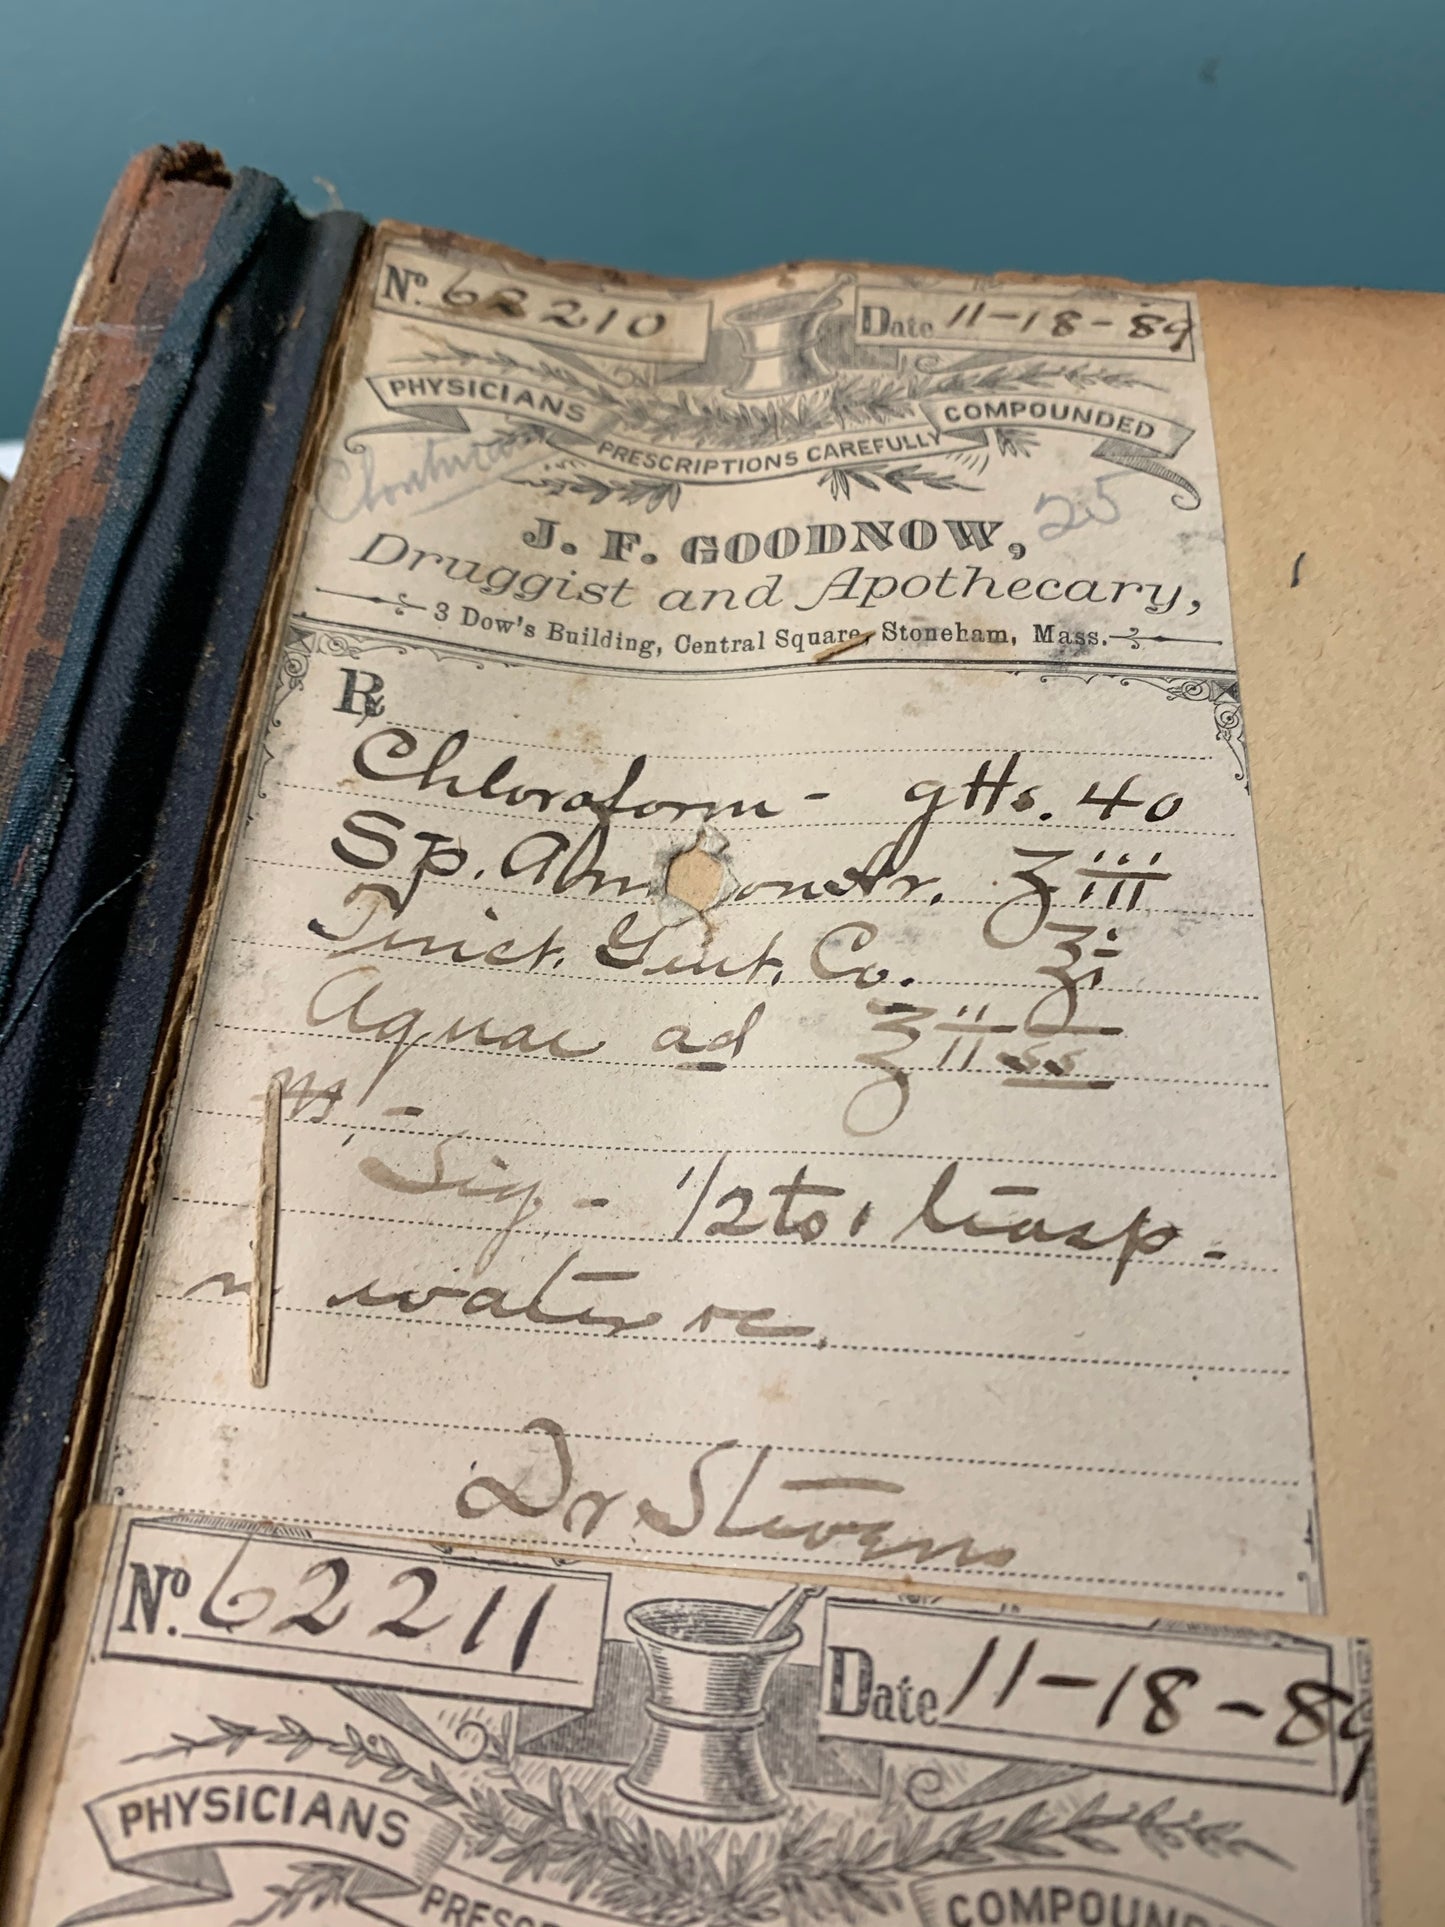 No. 62210
Date 11-18-89
PHYSICIANS PRESCRIPTIONS CAREFULLY COMPOUNDED
25
J. F. GOODNOW,
Druggist and Apothecary,
3 Dow's Building, Central Square, Stoneham, Mass.
℞
Chloroform - gtts. 40
Sp. Am on Ar. ʒ iii
Tinct. Gent. Co. ʒ i
Aquae ad ℥ ii ss
M. -
Sig - 1/2 to 1 teasp -
in water
Dr Stevens
No. 62211
Date 11-18-89
PHYSICIANS
COMPOUN